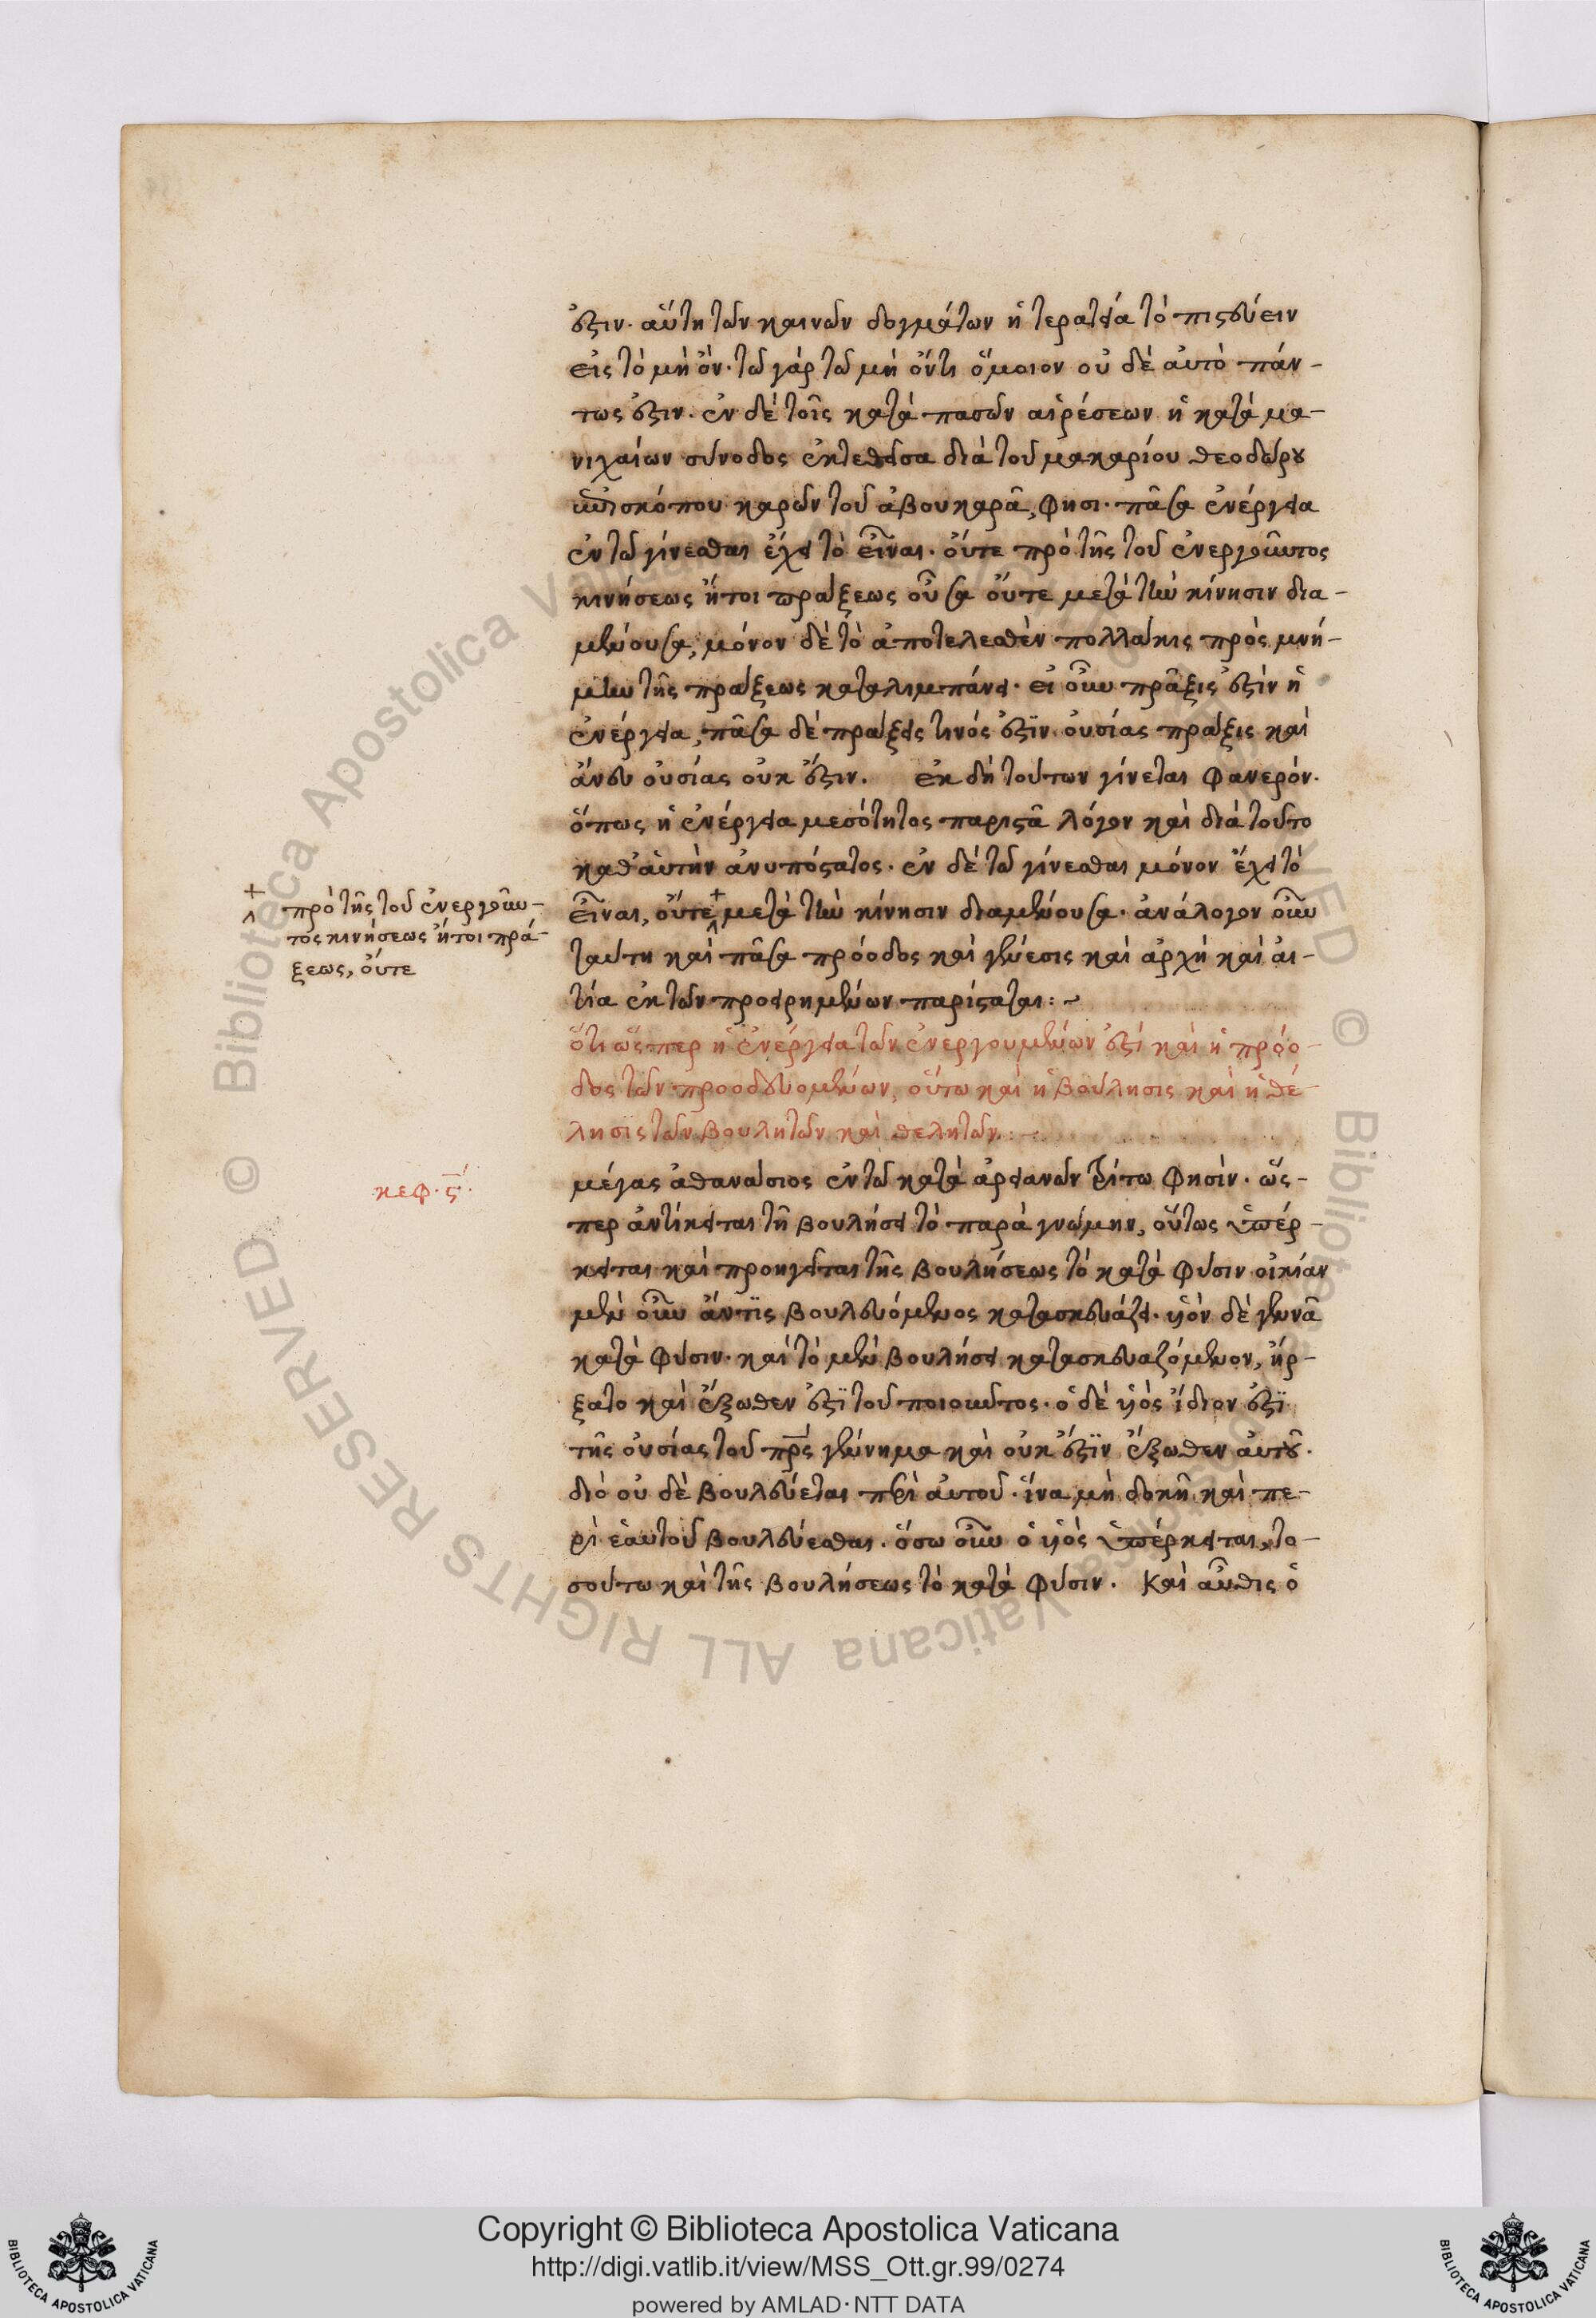 ἔστιν· αὕτη τῶν καινῶν δογμάτων ἡ τερατεία τὸ πιστεύειν
εἰς τὸ μὴ ὄν· τῶ γὰρ τῶ μὴ ὄντι ὅμοιον οὐδὲ αὐτὸ πάν-
τως ἔστιν. ἐν δὲ τοῖς κατὰ πασῶν αἱρέσεων ἡ κατὰ μα-
νιχαίων σύνοδος ἐκτεθεῖσα διὰ τοῦ μακαρίου θεοδώρου
ἐπισκόπου καρῶν τοῦ ἀβουκαρᾶ, φησι· πᾶσα ἐνέργεια
ἐν τῶ γίνεσθαι ἔχει τὸ εἶναι· οὔτε πρὸ τῆς τοῦ ἐνεργοῦντος
κινήσεως ἤτοι πράξεως οὖσα οὔτε μετὰ τὴν κίνησιν δια-
μένουσα, μόνον δὲ τὸ ἀποτελεσθὲν πολλάκις πρὸς μνή-
μην τῆς πράξεως καταλιμπάνει· εἰ οὖν πρᾶξις ἐστὶν ἡ
ἐνέργεια, πᾶσα δὲ πράξεις τινός ἐστϊν οὐσίας πράξις καὶ
ἄνευ οὐσίας οὐκ ἔστιν. ἐκ δὴ τούτων γίνεται φανερόν·
ὅπως ἡ ἐνέργεια μεσότητος παριστᾶ λόγον καὶ διὰ τοῦτο
καθ' αὑτὴν ἀνυπόστατος· ἐν δὲ τῶ γίνεσθαι μόνον ἔχει τὸ
εἶναι, οὔτε + μετὰ τὴν κίνησιν διαμένουσα· ἀνάλογον οὖν
+ πρὸ τῆς τοῦ ἐνεργοῦν-
τος κινήσεως ἤτοι πρά-
ξεως, οὔτε
ταύτη καὶ πᾶσα πρόοδος καὶ γένεσις καὶ ἀρχὴ καὶ αἰ-
τία ἐκ τῶν προειρημένων παρίσταται:
ὅτι ὥσπερ ἡ ἐνέργεια τῶν ἐνεργουμένων ἐστὶ καὶ ἡ πρόο-
δος τῶν προοδευομένων, οὕτω καὶ ἡ βούλησις καὶ ἡ θέ-
λησις τῶν βουλητῶν καὶ θελητῶν:
κεφ. ς΄.
μέγας ἀθανάσιος ἐν τῶ κατὰ ἀρειανῶν τρίτω φησὶν· ὥσ-
περ ἀντίκειται τῆ βουλήσει τὸ παρὰ γνώμην, οὕτως ὑπέρ-
κειται καὶ προηγεῖται τῆς βουλήσεως τὸ κατὰ φύσιν οἰκίαν
μὲν οὖν ἄν τϊς βουλευόμενος κατασκευάζει· υἱὸν δὲ γεννᾶ
κατὰ φύσιν· καὶ τὸ μὲν βουλήσει κατασκευαζόμενον, ἤρ-
ξατο καὶ ἔξωθεν ἐστϊ τοῦ ποιοῦντος· ὁ δὲ υἱὸς ἴδιον ἐστϊ
τῆς οὐσίας τοῦ πρς γέννημα καὶ οὐκ ἔστϊν ἔξωθεν αὐτοῦ.
διὸ οὐδὲ βουλεύεται περὶ αὐτοῦ· ἵνα μὴ δοκῆ καὶ πε-
ρὶ ἑαυτοῦ βουλεύεσθαι. ὅσω οὖν ὁ υἱὸς ὑπέρκειται, το-
σούτω καὶ τῆς βουλήσεως τὸ κατὰ φύσιν. Καὶ αὖθις ὁ
© Biblioteca Apostolica Vaticana ALL RIGHTS RESERVED
Copyright © Biblioteca Apostolica Vaticana
http://digi.vatlib.it/view/MSS_Ott.gr.99/0274
powered by AMLAD·NTT DATA
BIBLIOTECA APOSTOLICA VATICANA
BIBLIOTECA APOSTOLICA VATICANA